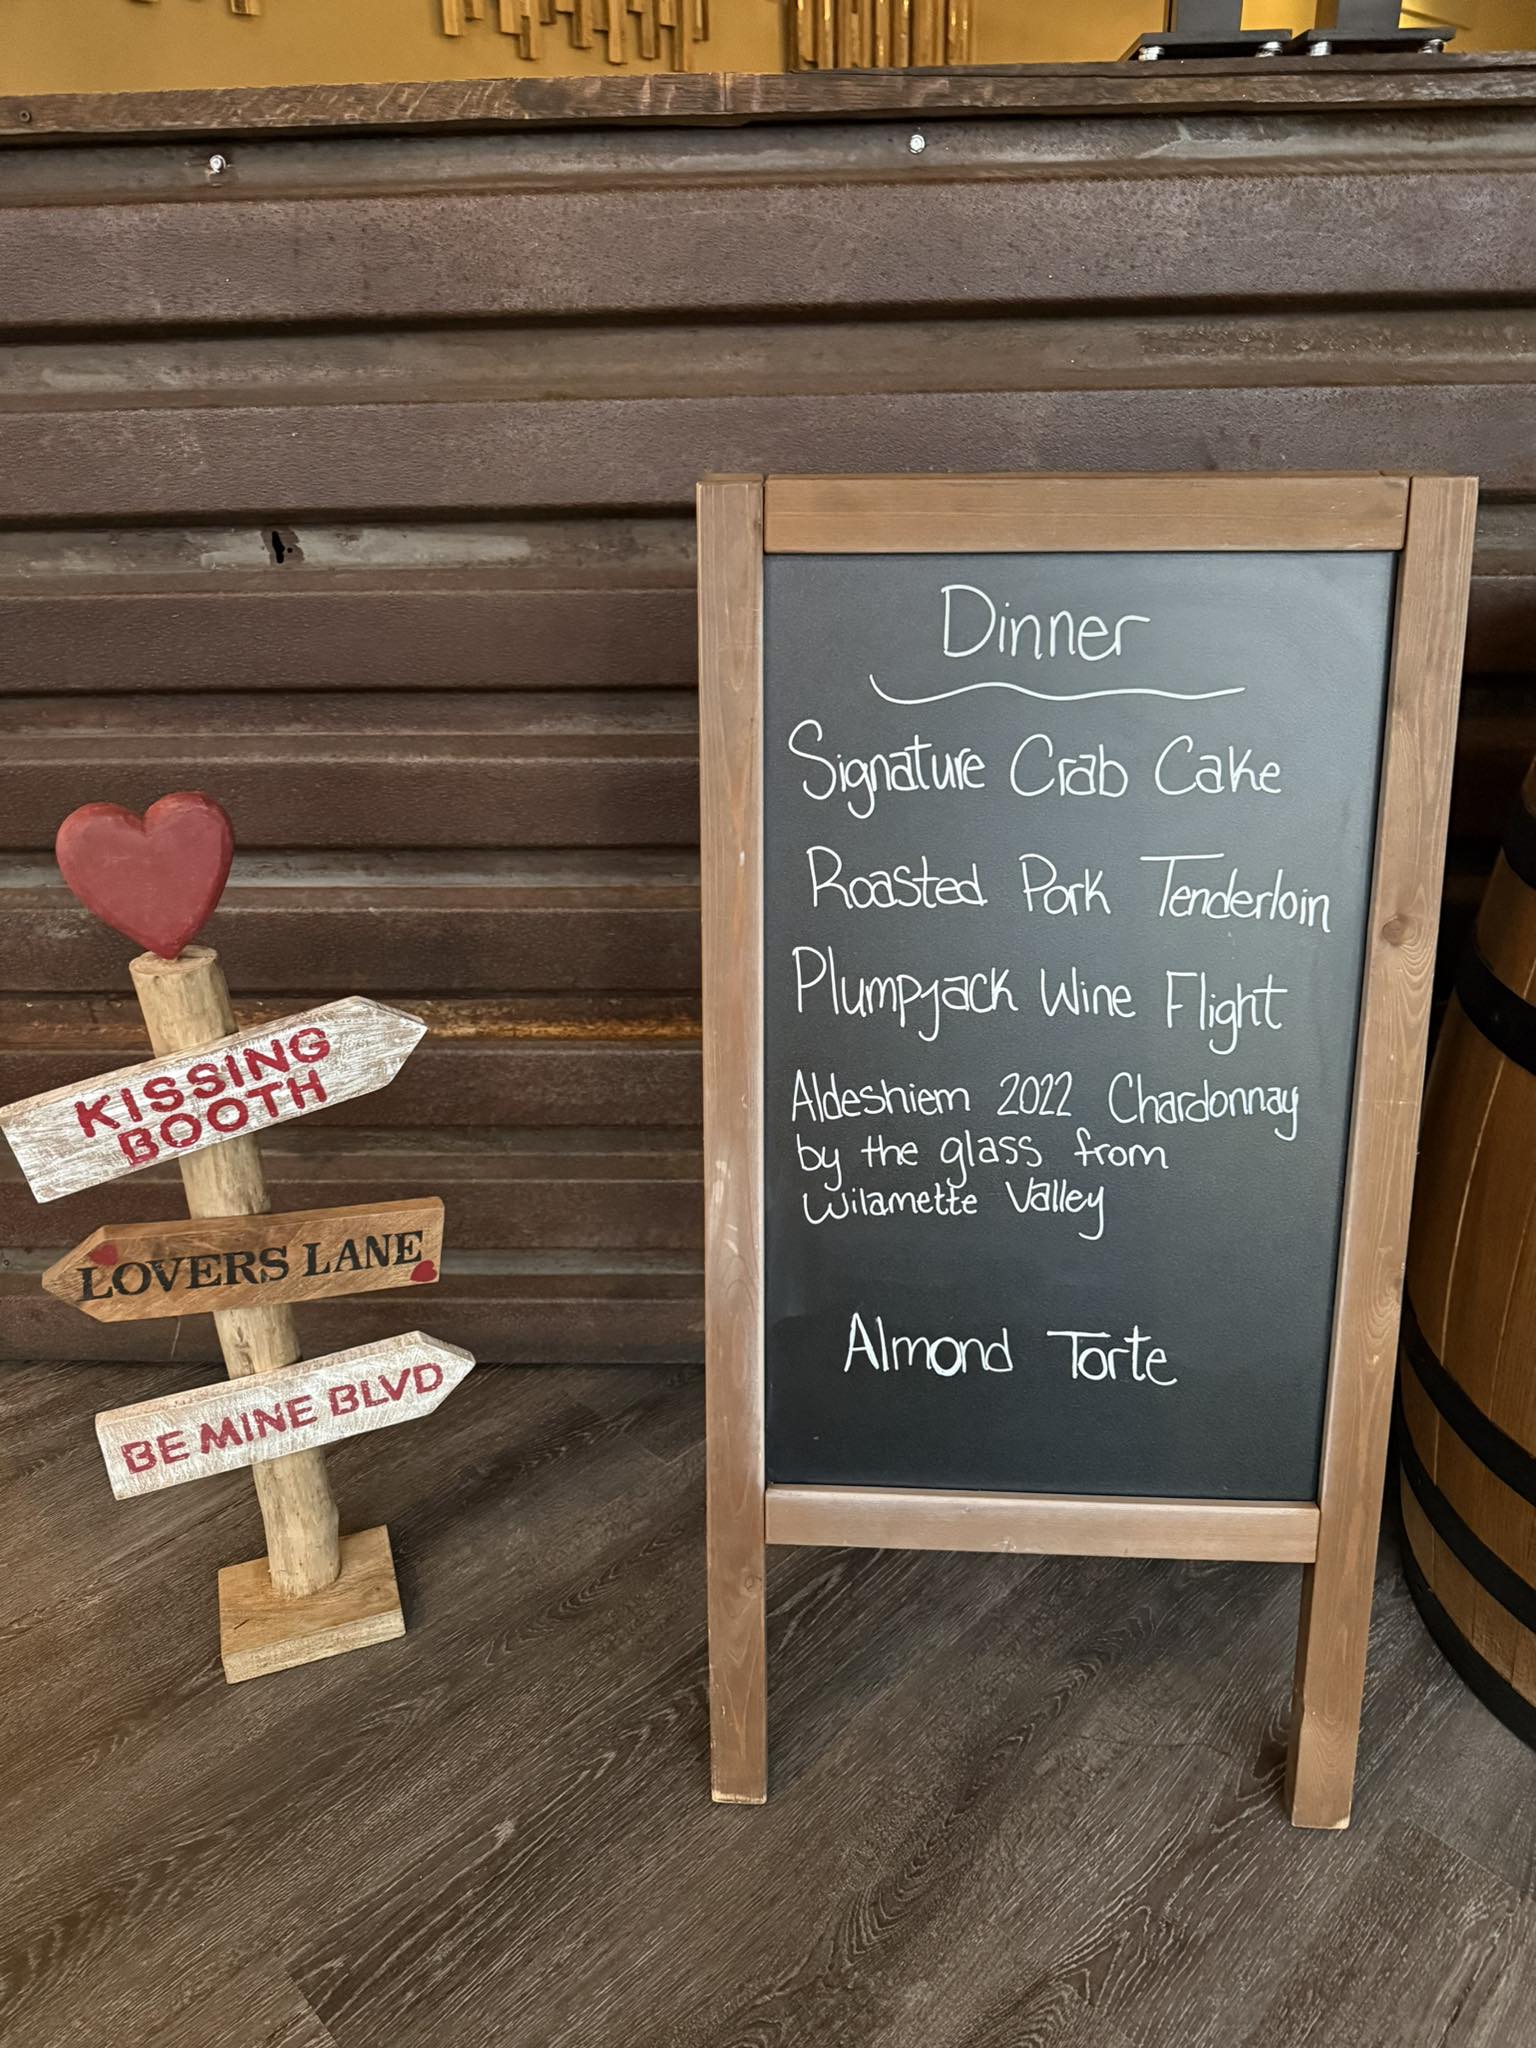 Dinner
Signature Crab Cake
Roasted Pork Tenderloin
Plumpjack Wine Flight
Aldeshiem 2022 Chardonnay
by the glass from
Wilamette Valley
Almond Torte
KISSING
BOOTH
LOVERS LANE
BE MINE BLVD